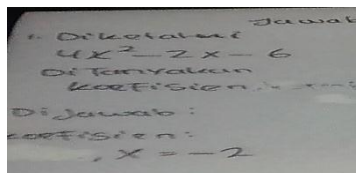 Jawab
1. Diketahui
4x² - 2x - 6
Ditanyakan
koefisien
Dijawab:
koefisien:
x = -2